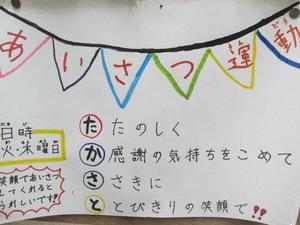 あいさつ運動
うん どう
日時
にち じ
火・木曜日
た たのしく
か 感謝の気持ちをこめて
さ さきに
と とびきりの笑顔で!!
笑顔であいさつ
してくれると
うれしいです!